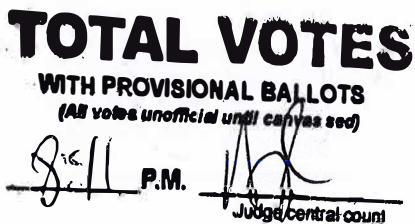 TOTAL VOTES
WITH PROVISIONAL BALLOTS
(All votes unofficial until canvassed)
P.M.
Judge/central count